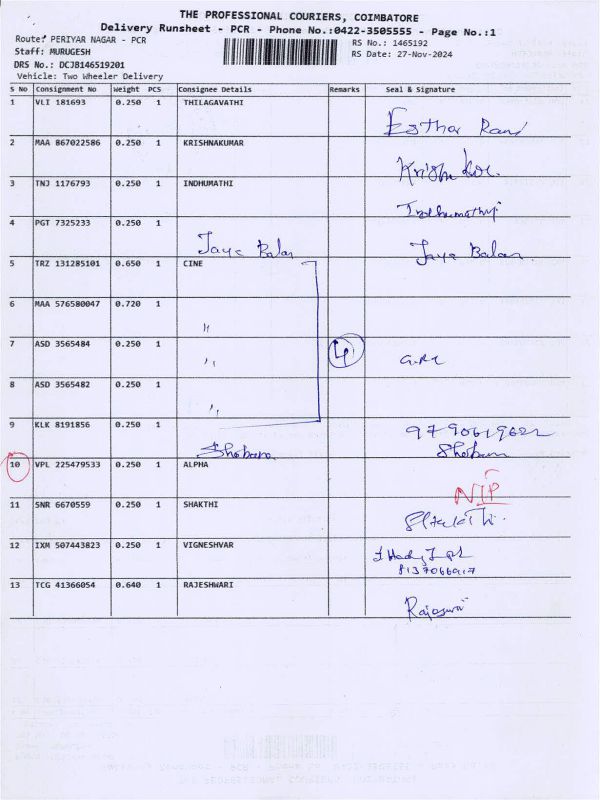 THE PROFESSIONAL COURIERS, COIMBATORE
Delivery Runsheet - PCR - Phone No.:0422-3505555 - Page No.:1
Route: PERIYAR NAGAR - PCR
RS No.: 1465192
Staff: MURUGESH
RS Date: 27-Nov-2024
DRS No.: DCJB146519201
Vehicle: Two Wheeler Delivery
S No Consignment No Weight PCS Consignee Details Remarks Seal & Signature
1 VLI 181693 0.250 1 THILAGAVATHI
Esthar Rani
2 MAA 867022586 0.250 1 KRISHNAKUMAR
3 TNJ 1176793 0.250 1 INDHUMATHI
Indhumathi
4 PGT 7325233 0.250 1
Jaya Balan Jaya Balan
5 TRZ 131285101 0.650 1 CINE
6 MAA 576580047 0.720 1
"
7 ASD 3565484 0.250 1
" 4
8 ASD 3565482 0.250 1
"
9 KLK 8191856 0.250 1
9790619622
Shobana Shobana
10 VPL 225479533 0.250 1 ALPHA
NIP
11 SNR 6670559 0.250 1 SHAKTHI
Shakthi
12 IXM 507443823 0.250 1 VIGNESHVAR
8137066917
13 TCG 41366054 0.640 1 RAJESHWARI
Rajeswari